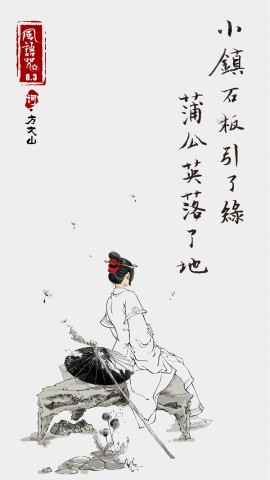 小鎮石板引了綠
蒲公英落了地
風語咒
8.3
詞·方文山